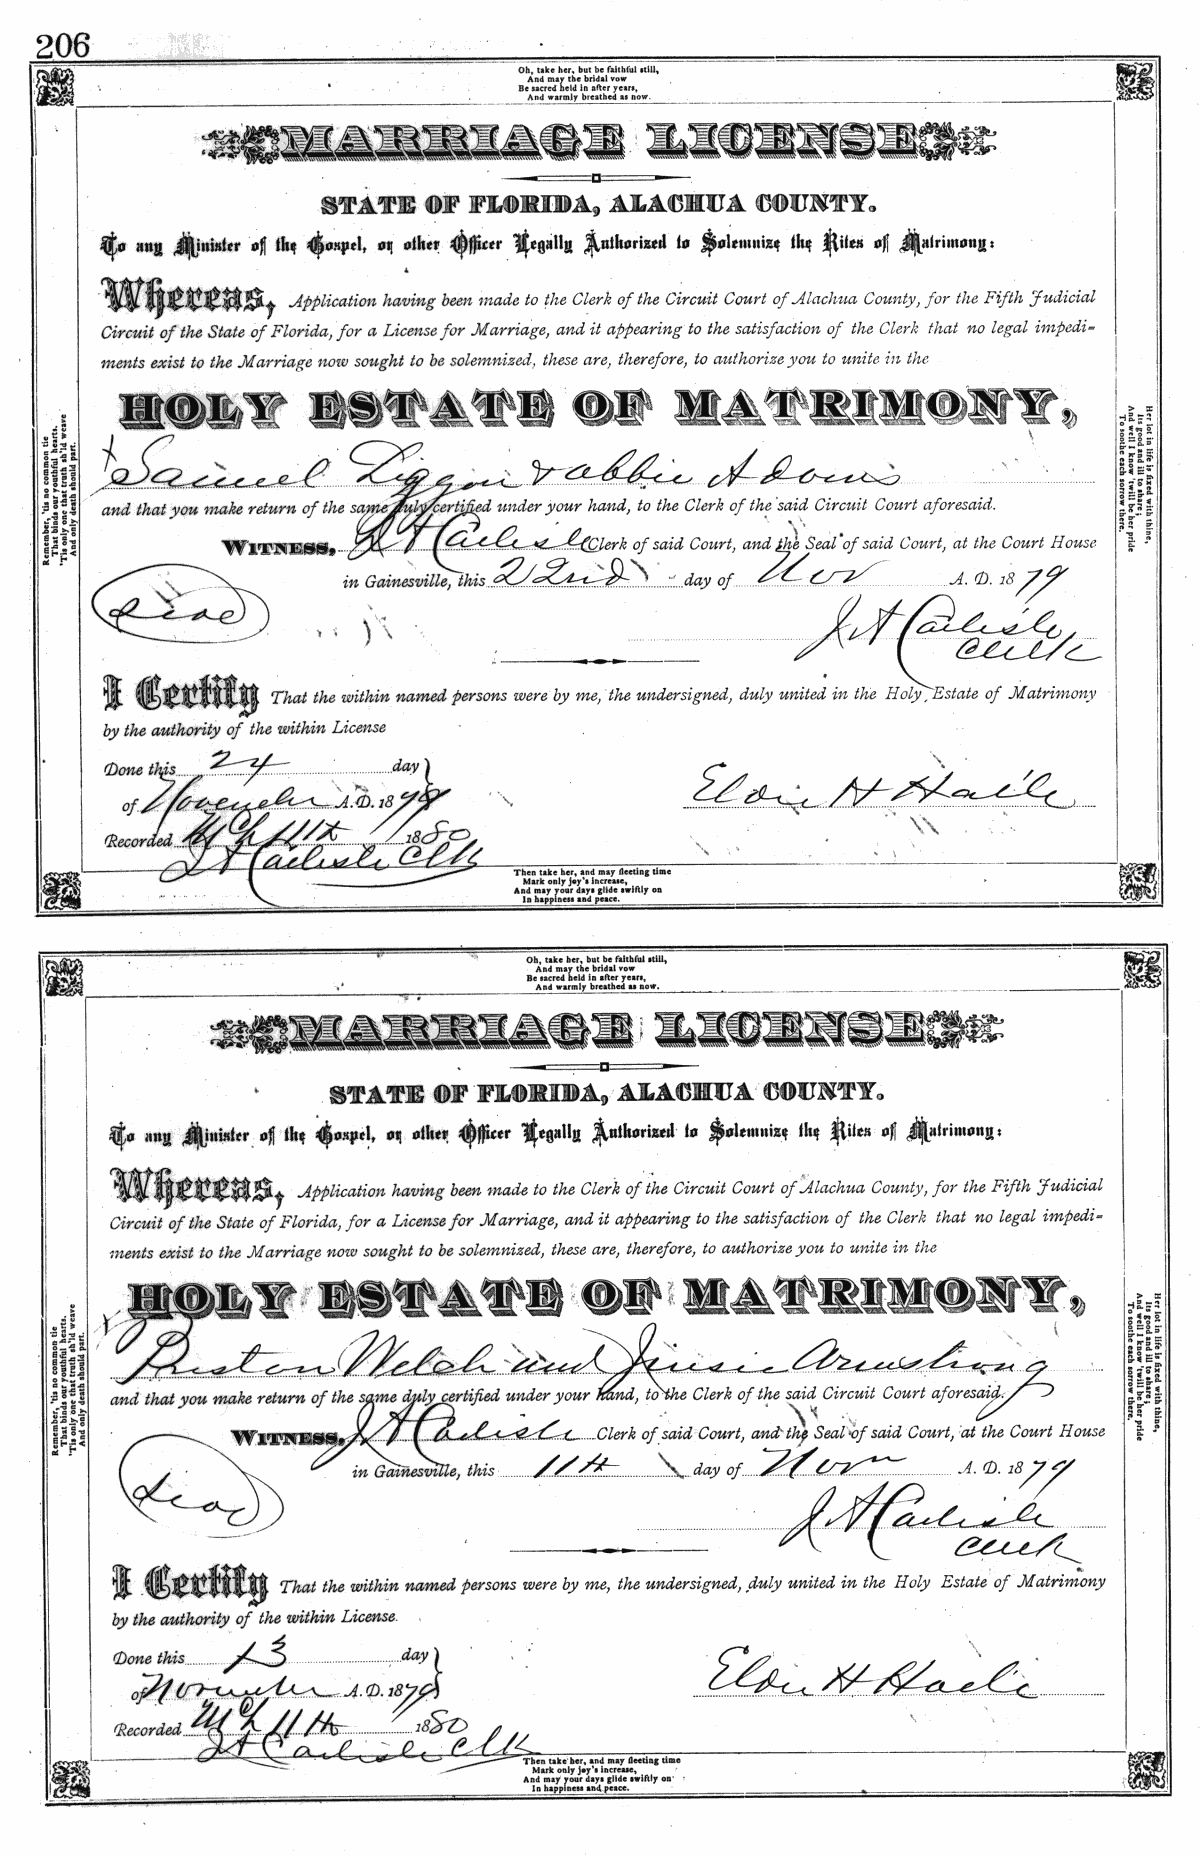 206
Oh, take her, but be faithful still,
And may the bridal vow
Be sacred held in after years,
And warmly breathed as now.
MARRIAGE LICENSE
STATE OF FLORIDA, ALACHUA COUNTY.
To any Minister of the Gospel, or other Officer Legally Authorized to Solemnize the Rites of Matrimony:
Whereas, Application having been made to the Clerk of the Circuit Court of Alachua County, for the Fifth Judicial
Circuit of the State of Florida, for a License for Marriage, and it appearing to the satisfaction of the Clerk that no legal impedi-
ments exist to the Marriage now sought to be solemnized, these are, therefore, to authorize you to unite in the
HOLY ESTATE OF MATRIMONY,
Samuel Liggon & Abbie Adams
and that you make return of the same duly certified under your hand, to the Clerk of the said Circuit Court aforesaid.
WITNESS, J A Carlisle Clerk of said Court, and the Seal of said Court, at the Court House
in Gainesville, this 22nd day of Nov A. D. 1879
Seal
J A Carlisle
Clerk
I Certify That the within named persons were by me, the undersigned, duly united in the Holy Estate of Matrimony
by the authority of the within License
Done this 24 day
of November A.D. 1879
Recorded Mch 11th 1880
J A Carlisle Clk
H Haile
Remember, 'tis no common tie
That binds our youthful hearts.
'Tis only one that truth sh'ld weave
And only death should part.
Her lot in life is fixed with thine,
its good and ill to share;
And well I know 'twill be her pride
To soothe each sorrow there.
Then take her, and may fleeting time
Mark only joy's increase,
And may your days glide swiftly on
In happiness and peace.
Oh, take her, but be faithful still,
And may the bridal vow
Be sacred held in after years,
And warmly breathed as now.
MARRIAGE LICENSE
STATE OF FLORIDA, ALACHUA COUNTY.
To any Minister of the Gospel, or other Officer Legally Authorized to Solemnize the Rites of Matrimony:
Whereas, Application having been made to the Clerk of the Circuit Court of Alachua County, for the Fifth Judicial
Circuit of the State of Florida, for a License for Marriage, and it appearing to the satisfaction of the Clerk that no legal impedi-
ments exist to the Marriage now sought to be solemnized, these are, therefore, to authorize you to unite in the
HOLY ESTATE OF MATRIMONY,
Preston Welch and Armstrong
and that you make return of the same duly certified under your hand, to the Clerk of the said Circuit Court aforesaid.
WITNESS, J A Carlisle Clerk of said Court, and the Seal of said Court, at the Court House
in Gainesville, this 11th day of Novr A. D. 1879
Seal
J A Carlisle
Clerk
I Certify That the within named persons were by me, the undersigned, duly united in the Holy Estate of Matrimony
by the authority of the within License.
Done this 13 day
of November A.D. 1879
Recorded Mch 11th 1880
J A Carlisle Clk
H Haile
Remember, 'tis no common tie
That binds our youthful hearts.
'Tis only one that truth sh'ld weave
And only death should part.
Her lot in life is fixed with thine,
its good and ill to share;
And well I know 'twill be her pride
To soothe each sorrow there.
Then take her, and may fleeting time
Mark only joy's increase,
And may your days glide swiftly on
In happiness and peace.